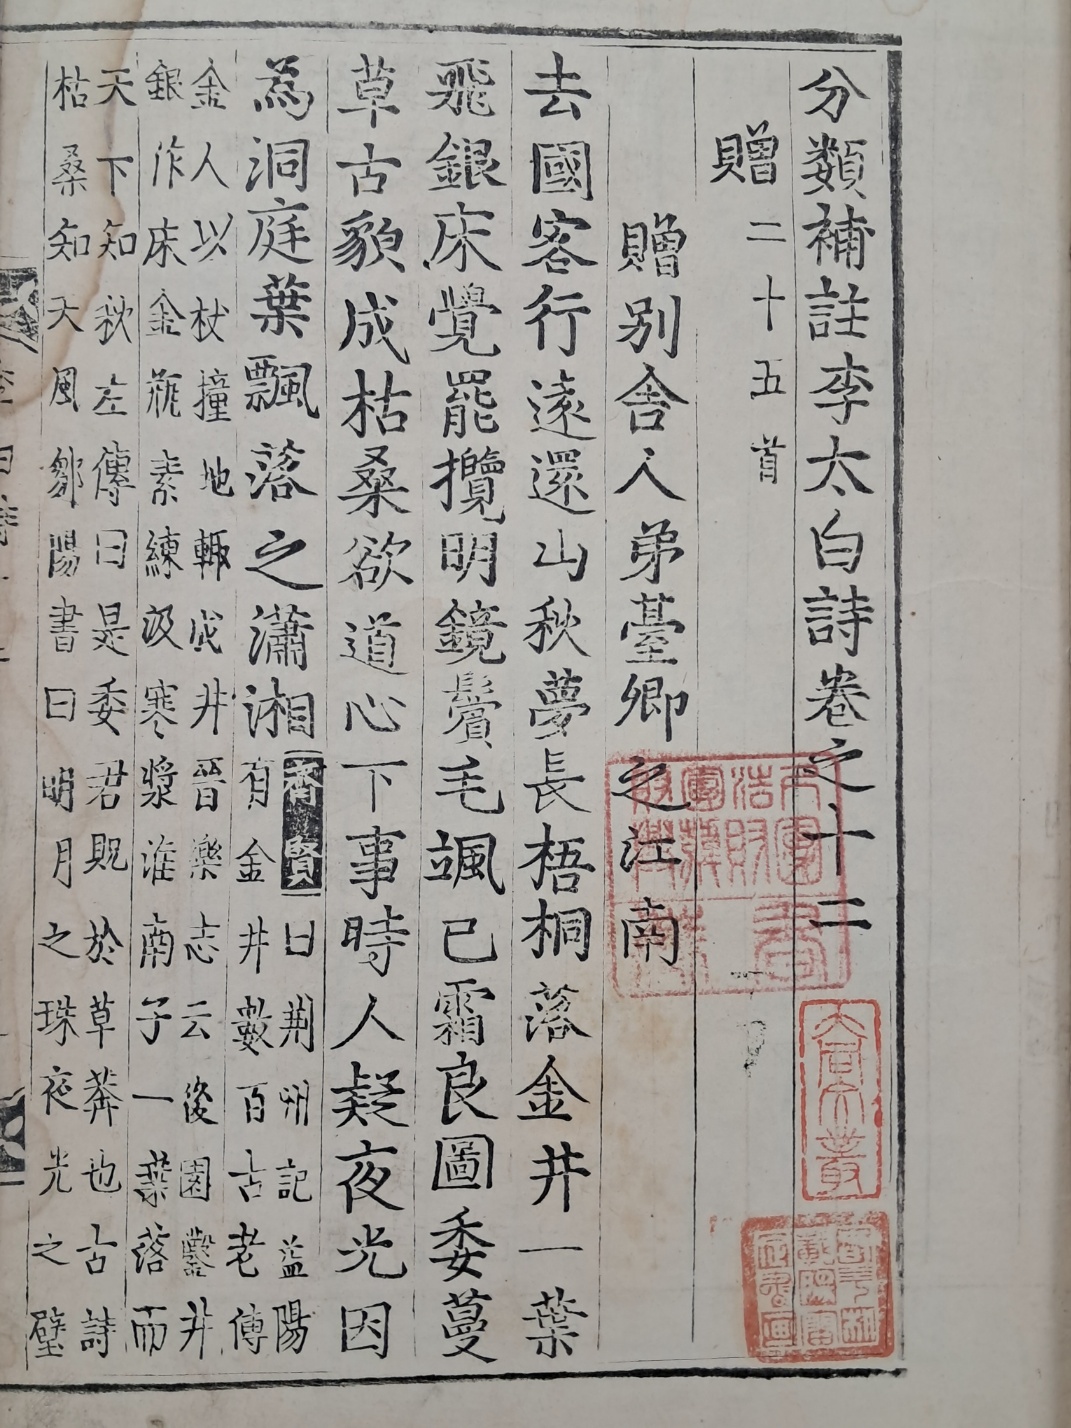 分類補註李太白詩卷之十二
贈二十五首
贈別舍人弟臺卿之江南
去國客行遠還山秋夢長梧桐落金井一葉
飛銀床覺罷攬明鏡鬢毛颯已霜良圖委蔓
草古貌成枯桑欲道心下事時人疑夜光因
為洞庭葉飄落之瀟湘
齊賢曰荆州記益陽
有金井數百古老傳
金人以杖撞地輙成井晉樂志云後園鑿井
銀作床金瓶素練汲寒漿淮南子一葉落而
天下知秋左傳曰是委君貺於草莽也古詩
枯桑知天風鄒陽書曰明月之珠夜光之璧